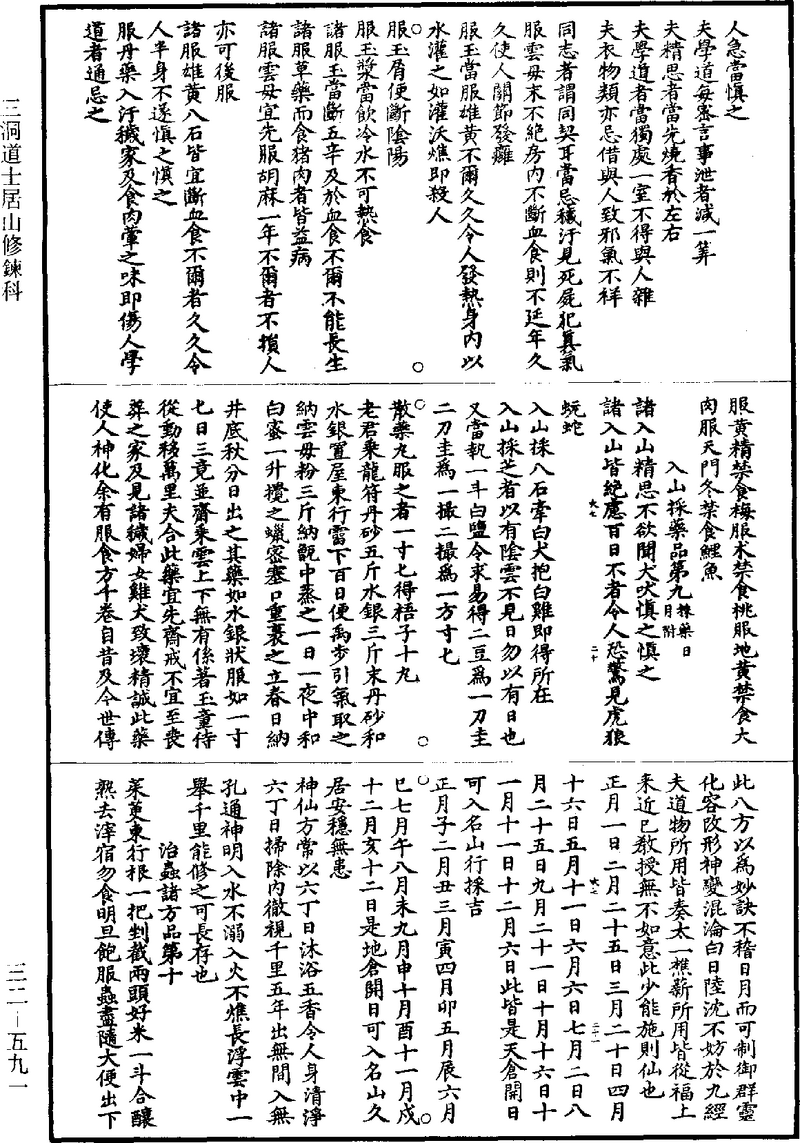 人急當慎之
夫學道每密言事泄者減一筭
夫精思者當先燒香於左右
夫學道者當獨處一室不得與人雜
夫衣物類亦忌借與人致邪氣不祥
同志者謂同契耳當忌穢汙見死屍犯真氣
服雲母末不絕房內不斷血食則不延年久
久使人關節發癰
服玉當服雄黃不爾久久令人發熱身內以
水灌之如灌沃燋即殺人
服玉屑便斷陰陽
服玉漿當飲冷水不可熱食
諸服玉當斷五辛及於血食不爾不能長生
諸服草藥而食猪肉者皆益病
諸服雲母宜先服胡麻一年不爾者不損人
亦可後服
諸服雄黃八石皆宜斷血食不爾者久久令
人半身不遂慎之慎之
服丹藥入汙穢家及食肉葷之味即傷人學
道者通忌之
服黃精禁食梅服朮禁食桃服地黃禁食大
肉服天門冬禁食鯉魚
入山採藥品第九採藥日月附
諸入山精思不欲聞犬吠慎之慎之
諸入山皆絕應百日不者令人恐驚見虎狼
蚖蛇
入山採八石牽白犬抱白雞即得所在
入山採芝者以有陰雲不見日勿以有日也
又當執一斗白鹽令求易得二豆為一刀圭
二刀圭為一撮二撮為一方寸七
散藥九服之者一寸七得梧子十九
老君乘龍符丹砂五斤水銀三斤末丹砂和
水銀置屋東行霤下百日便禹步引氣取之
納雲母粉三斤納甑中蒸之一日一夜中和
白蜜一升攪之蠟密塞口重裹之立春日納
井底秋分日出之其藥如水銀狀服如一寸
七日三竟並齋乘雲上下無有係著玉童侍
從動移萬里夫合此藥宜先齋戒不宜至喪
葬之家及見諸穢婦女雞犬致壞精誠此藥
使人神化余有服食方千卷自昔及今世傳
此八方以為妙訣不稽日月而可制御群靈
化容改形神變混淪白日陸沈不妨於九經
夫道物所用皆奏太一樵薪所用皆從福上
來近已教授無不如意此少能施則仙也
正月一日二月二十五日三月二十日四月
十六日五月十一日六月六日七月二日八
月二十五日九月二十一日十月十六日十
一月十一日十二月六日此皆是天倉開日
可入名山行採吉
正月子二月丑三月寅四月卯五月辰六月
巳七月午八月未九月申十月酉十一月戌
十二月亥十二日是地倉開日可入名山久
居安穩無患
神仙方常以六丁日沐浴五香令人身清淨
六丁日掃除內徹視千里五年出無間入無
孔通神明入水不溺入火不燋長浮雲中一
舉千里能修之可長存也
治蟲諸方品第十
茱萸東行根一把剉截兩頭好米一斗合釀
熟去滓宿勿食明旦飽服蟲盡隨大便出下
三洞道士居山修鍊科
三二—五九一